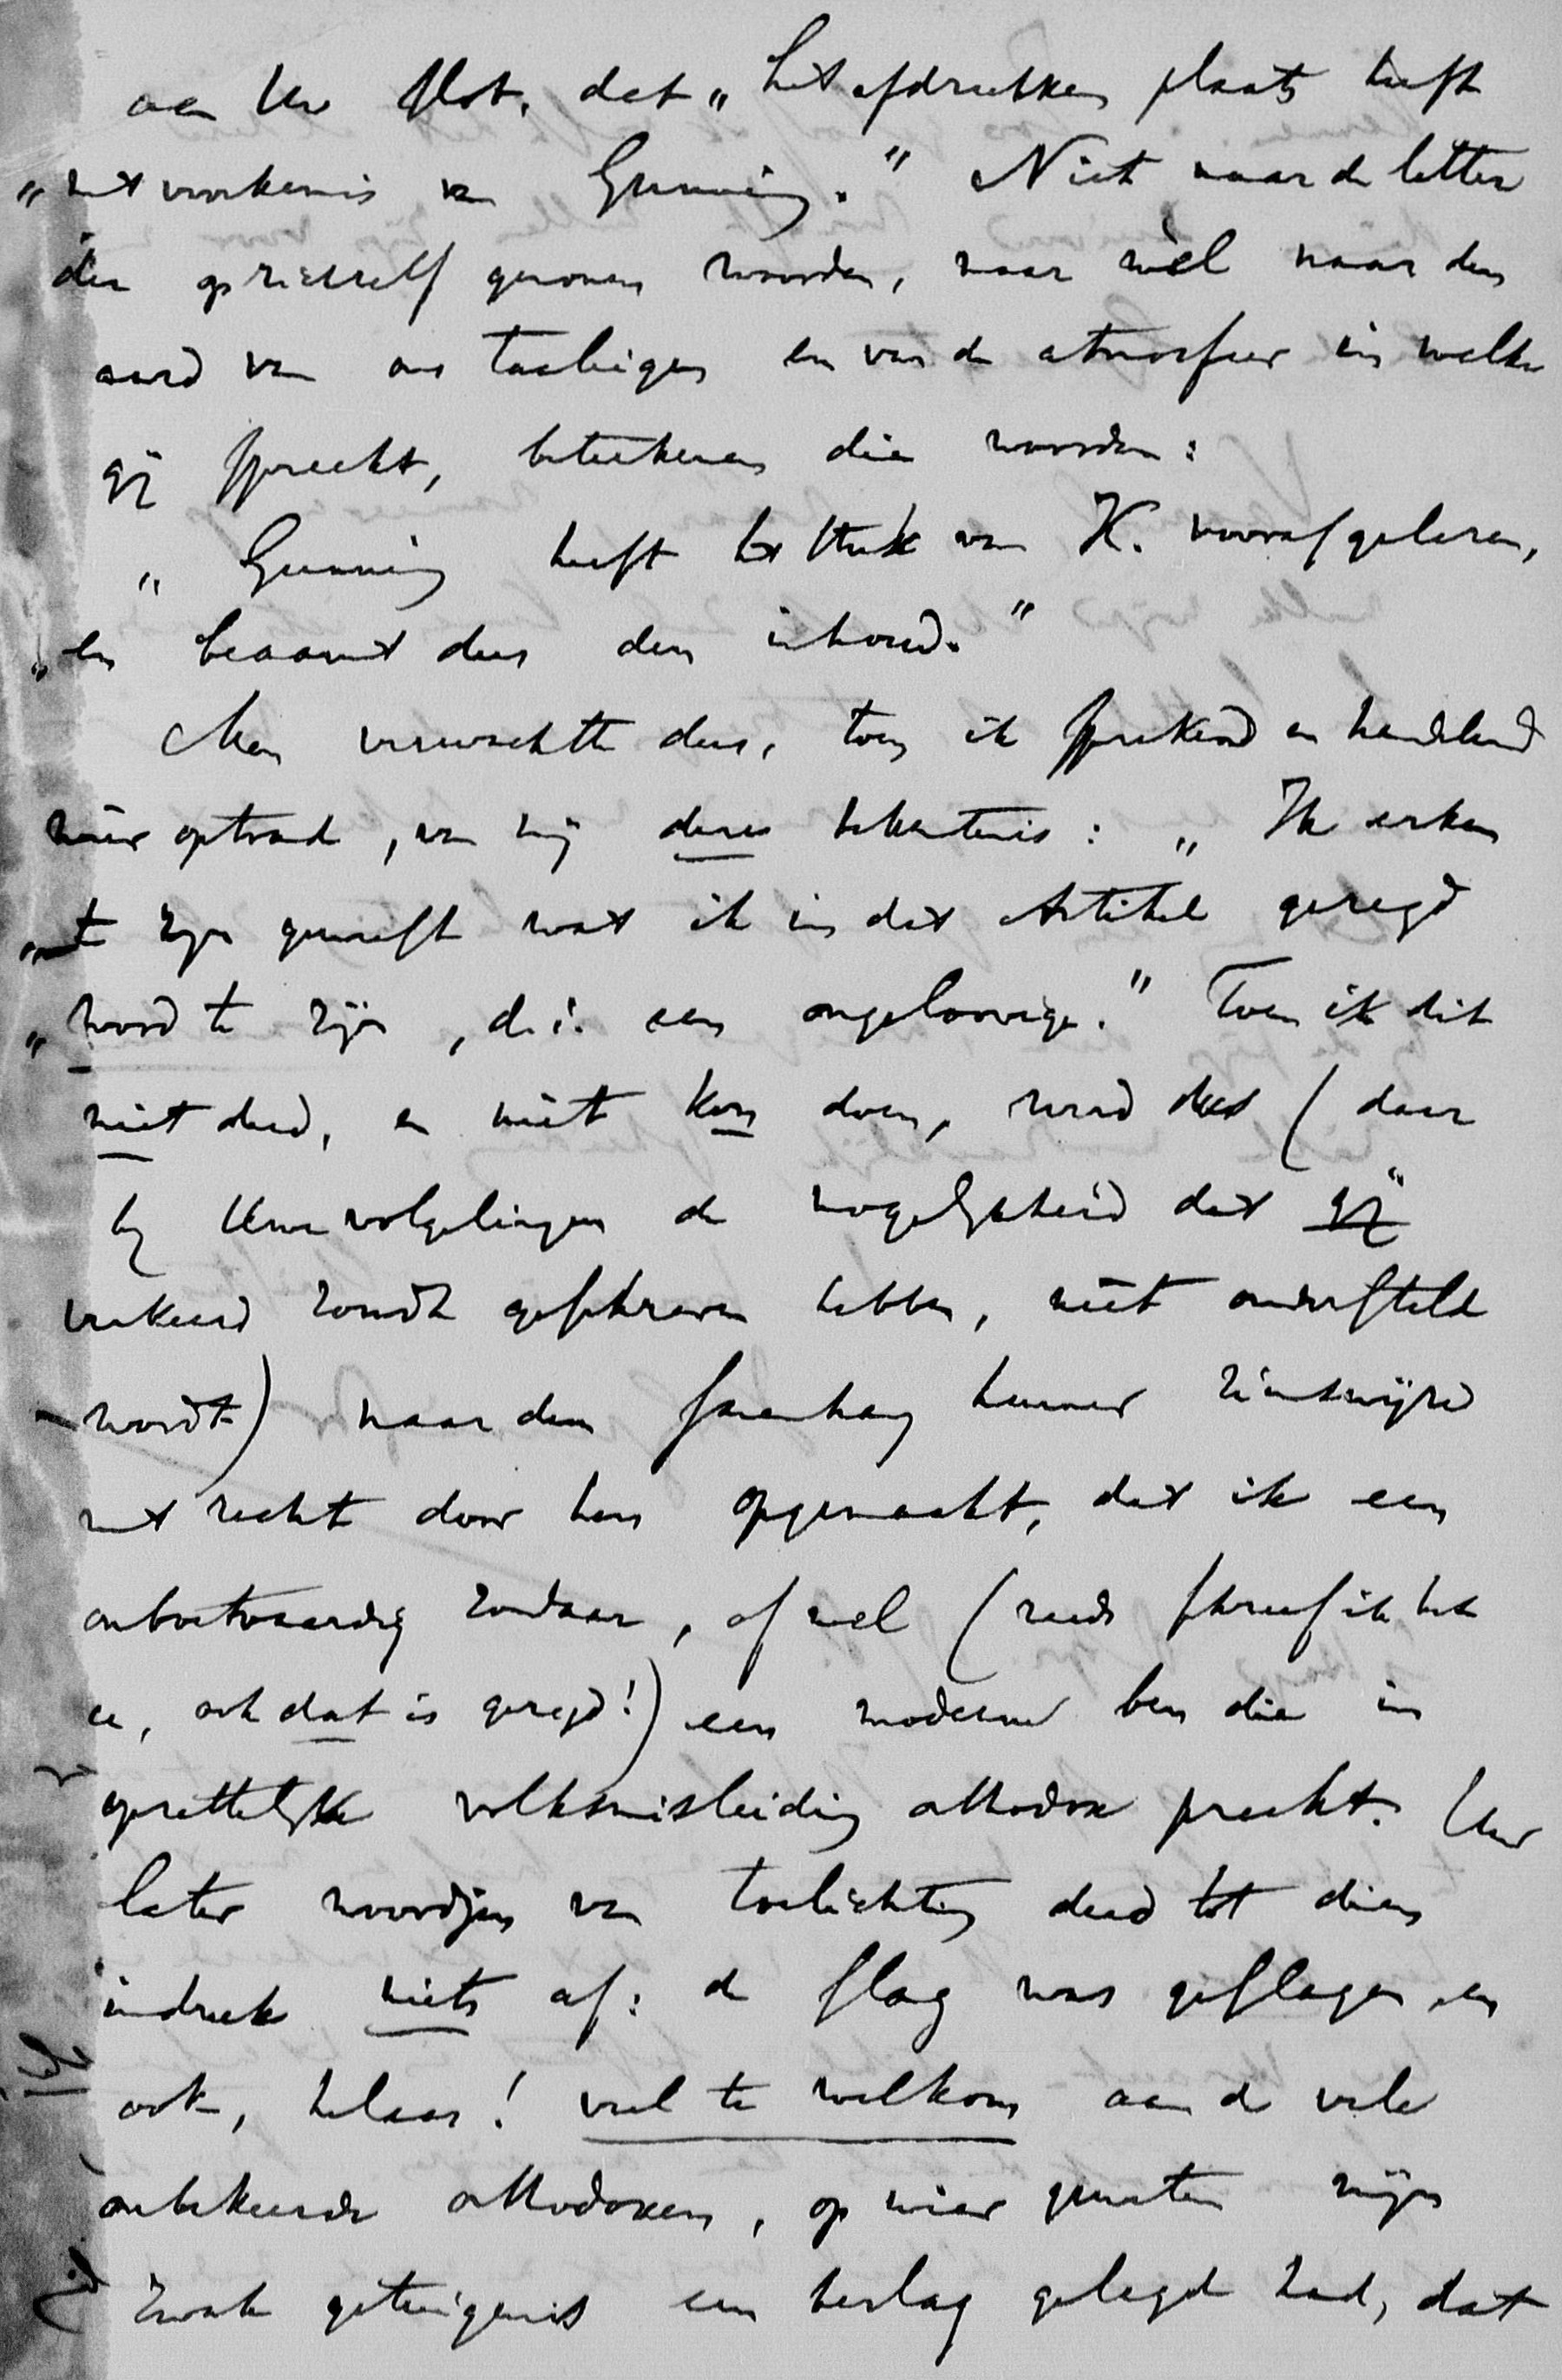 aan Uw slot, dat „het afdrukken plaats heeft
„met voorkennis van Gunning." Niet naar de letter
der op zichzelf genomen woorden, maar wèl naar den
aard van ons taaleigen en van de atmosfeer in welke
gij spreekt, beteekenen die woorden:
„Gunning heeft het stuk van K. vooraf gelezen,
„en beaamt dus den inhoud."
Men verwachtte dus, toen ik sprekend en handelend
weer optrad, van mij deze bekentenis: „Ik erken
„te zijn geweest wat ik in dat Artikel gezegd
„word te zijn, d.i. een ongeloovige." Toen ik dit
niet deed, en niet kon doen, werd dus (daar
bij Uwe volgelingen de mogelijkheid dat gij
verkeerd zoudt geschreven hebben, niet ondersteld
wordt) naar den samenhang hunner zienswijze
met recht door hen opgemaakt, dat ik een
onboetvaardig zondaar, of wel (reeds schreef ik het
u, ook dat is gezegd!) een moderne ben die in
opzettelijke volksmisleiding orthodox preekt. Uw
later woordjen van toelichting deed tot dien
indruk niets af: de slag was geslagen, en
ook, helaas! veel te welkom aan de vele
onbekeerde orthodoxen, op wier geweten mijn
zwak getuigenis een beslag gelegd had, dat